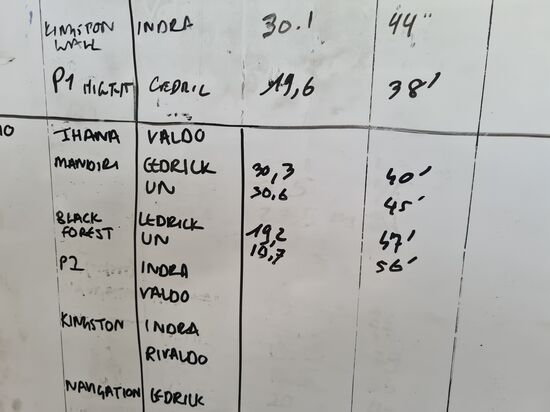 KINGSTON INDRA 30.1 44"
WALL
P1 NIGHT CEDRIC 19,6 38'
10 IHANA VALDO
MANDIRI CEDRICK 30,3 40'
UN 30,6 45'
BLACK CEDRICK 19,2 47'
FOREST UN 18,7 56'
P2 INDRA
VALDO
KINGSTON INDRA
RIVALDO
NAVIGATION CEDRICK